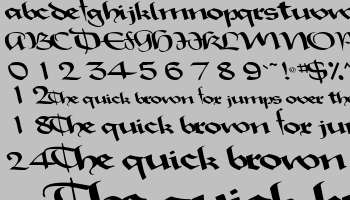 abcdefghijklmnopqrstuvw
ABCDEFGHIJKLMNOP
0123456789~`!@#$%^
12 The quick brown fox jumps over th
18 The quick brown fox ju
24 The quick brown